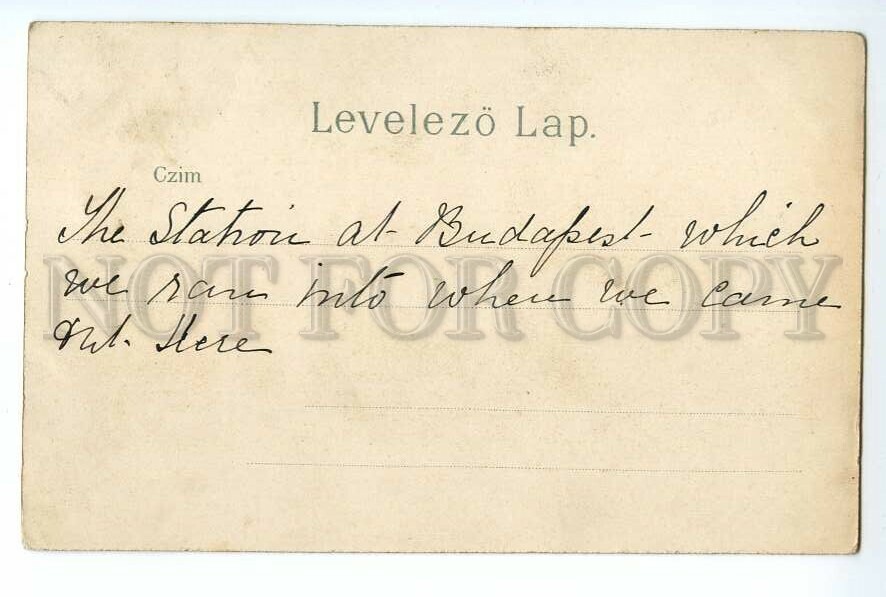 Levelező Lap.
Czim
The Station at Budapest - which
we ran into when we came
Out. Here
NOT FOR COPY